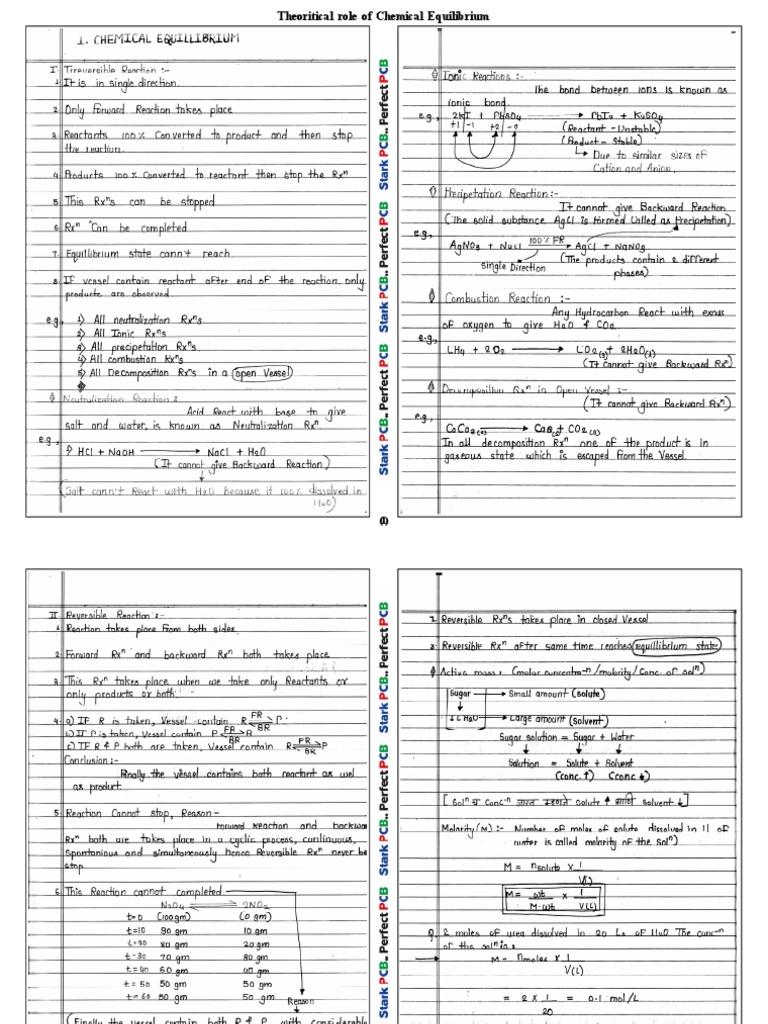 Theoritical role of Chemical Equilibrium
1. CHEMICAL EQUILLIBRIUM
I Irreversible Reaction :-
1. It is in single direction.
2. Only Forward Reaction takes place
3. Reactants 100% Converted to product and then stop
the reaction.
4. Products 100% Converted to reactant then stop the Rxⁿ
5. This Rxⁿs can be stopped
6. Rxⁿ Can be completed
7. Equillibrium state cann't reach.
8. IF vessel contain reactant after end of the reaction. only
products are observed.
e.g., 1) All neutralization Rxⁿs
2) All Ionic Rxⁿs
3) All precipitation Rxⁿs
4) All combustion Rxⁿs
5) All Decomposition Rxⁿs in a open Vessel
Neutralization Reaction :
Acid React with base to give
salt and water, is known as Neutralization Rxⁿ
e.g.,
HCl + NaOH → NaCl + H2O
(It cannot give Backward Reaction)
(Salt cann't React with H2O because it 100% dissolved in
H2O)
Stark PCB.. Perfect PCB
Stark PCB.. Perfect PCB
Stark PCB.. Perfect PCB
Ionic Reactions :-
The bond between ions is known as
ionic bond.
e.g., 2KI + PbSO4 → PbI2 + K2SO4
+1 -1 +2 -2 (Reactant - Unstable)
(Product - Stable)
↳ Due to similar sizes of
Cation and Anion.
Precipetation Reaction:-
It cannot give Backward Reaction
(The solid substance AgCl is formed Called as Precipetation)
e.g.,
AgNO3 + NaCl 100% FR → AgCl + NaNO3
Single Direction (The products contain 2 different
phases)
Combustion Reaction :-
Any Hydrocarbon React with
of oxygen to give H2O & CO2.
e.g.,
CH4 + 2O2 → CO2(g) + 2H2O(l)
(It Cannot give Backward Rxⁿ)
Decomposition Rxⁿ in Open Vessel :-
(It cannot give Backward Rxⁿ)
e.g.,
CaCO3(s) → CaO(s) + CO2(g)
In all decomposition Rxⁿ one of the product is in
gaseous state which is escaped from the Vessel.
(1)
II Reversible Reaction :-
1. Reaction takes place from both sides.
2. Forward Rxⁿ and backward Rxⁿ both takes place
3. This Rxⁿ takes place when we take only Reactants or
only products or both.
4. a) IF R is taken, Vessel contain R ⇌ P. FR BR
b) IF P is taken, Vessel contain P ⇌ R FR BR
c) IF R & P both are taken, Vessel contain R ⇌ P FR BR
Conclusion :-
Finally the vessel contains both reactant as wel
as product.
5. Reaction Cannot stop, Reason -
forward reaction and backwar
Rxⁿ both are takes place in a cyclic process, continuous,
Spontanious and simultaneously hence Reversible Rxⁿ never be
stop
6. This Reaction cannot completed
N2O4 ⇌ 2NO2
t=0 (100gm) (0 gm)
t=10 90 gm 10 gm
t=20 80 gm 20 gm
t=30 70 gm 30 gm
t=40 60 gm 40 gm
t=50 50 gm 50 gm
t=60 50 gm 50 gm
Reason
(Finally the vessel contain both R & P with considerable
Stark PCB.. Perfect PCB
Stark PCB.. Perfect PCB
Stark PCB.. Perfect PCB
7. Reversible Rxⁿs takes place in closed Vessel
8. Reversible Rxⁿ after some time reached equillibrium state
Active mass : (molar concentra-n / molarity / Conc. of solⁿ)
Sugar → Small amount (Solute)
1 L H2O → Large amount (Solvent)
Sugar solution = Sugar + Water
Solution = Solute + Solvent
(Conc. ↑) (Conc ↓)
[Solⁿ Conc-n जास्त म्हणजे Solute ↑ आणि Solvent ↓]
Molarity (M) :- Number of moles of solute dissolved in 1 l of
water is called molarity of the Solⁿ)
M = nsolute × 1
V(L)
M = wt × 1
M.wt V(L)
Q. 2 moles of urea dissolved in 20 Ls of H2O The conc-n
of the solⁿ is :
M = nmoles × 1
V(L)
= 2 × 1 = 0.1 mol/L
20